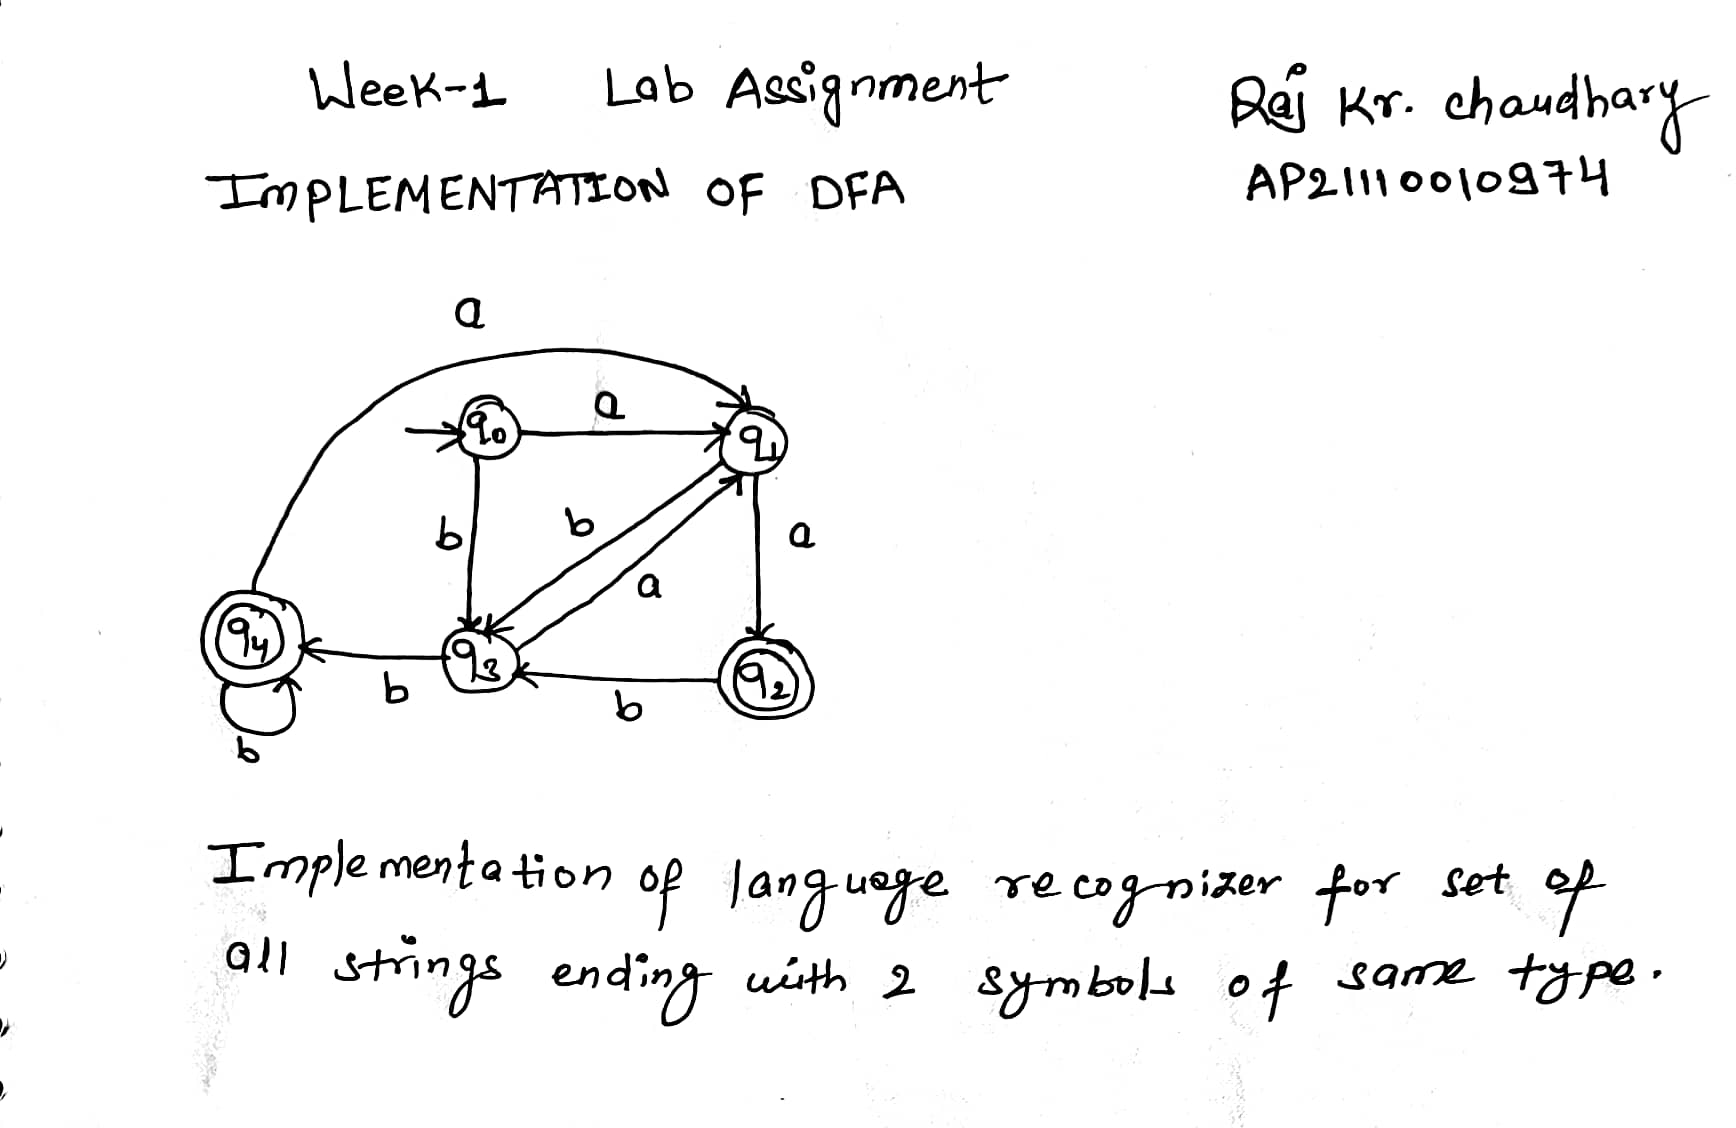 Week-1 Lab Assignment
Raj Kr. chaudhary
IMPLEMENTATION OF DFA
AP21110010974
a
a
q0
q1
b
b
a
a
q4
q3
q2
b
b
b
Implementation of language recognizer for set of
all strings ending with 2 symbols of same type.